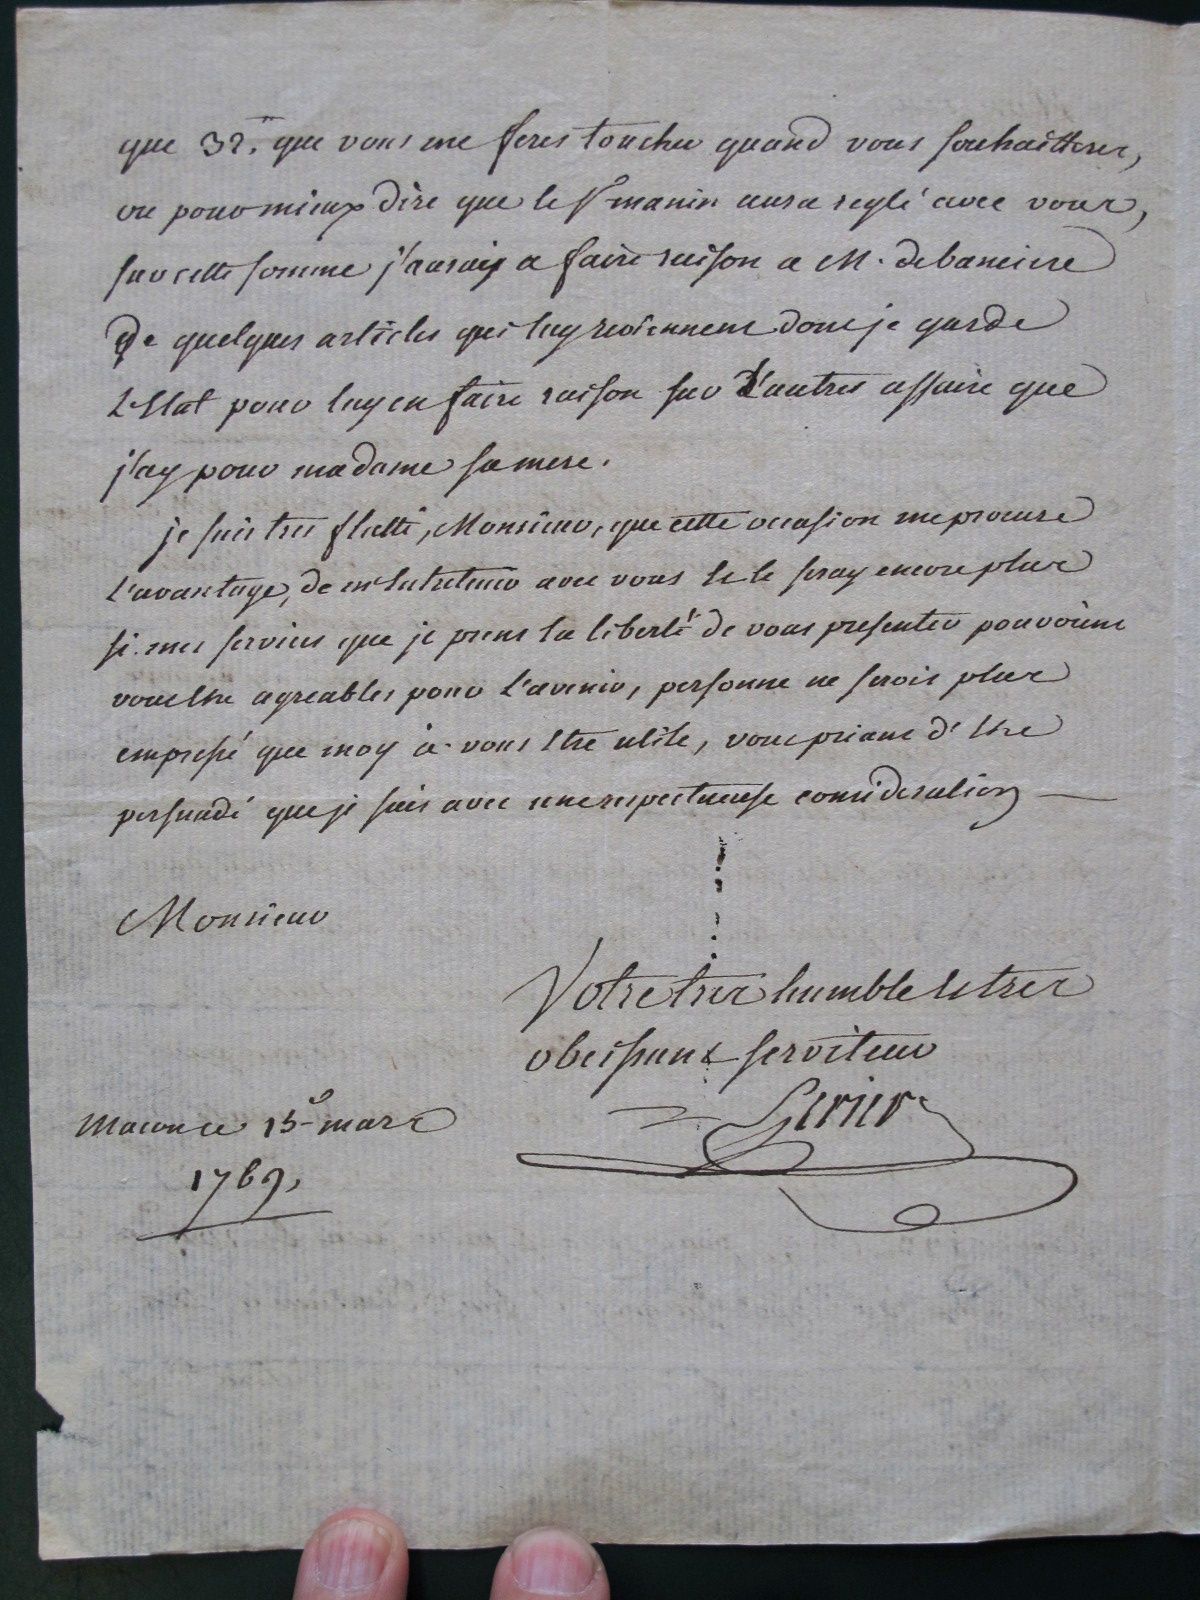 que 32.ᵗᵗ que vous me feres toucher quand vous souhaitteres,
ou pour mieux dire que le Sʳ manin aura reglé avec vous,
sur cette somme j'aurais a faire raison a M. de
de quelques articles qui luy reviennent dont je garde
L'Etat pour luy en faire raison sur d'autres affaire que
j'ay pour madame sa mere.
je suis tres flatté, Monsieur, que cette occasion me procure
L'avantage, de m'entretenir avec vous et le seray encore plus
si mes services que je prens la liberté de vous presenter pouvoient
vous etre agreables pour L'avenir, personne ne serois plus
empressé que moy a vous etre utile, vous priant d'etre
persuadé que je suis avec une respectueuse consideration
Monsieur
Votre tres humble et tres
obeissant serviteur
Macon ce 15ᵉ mars
1769,